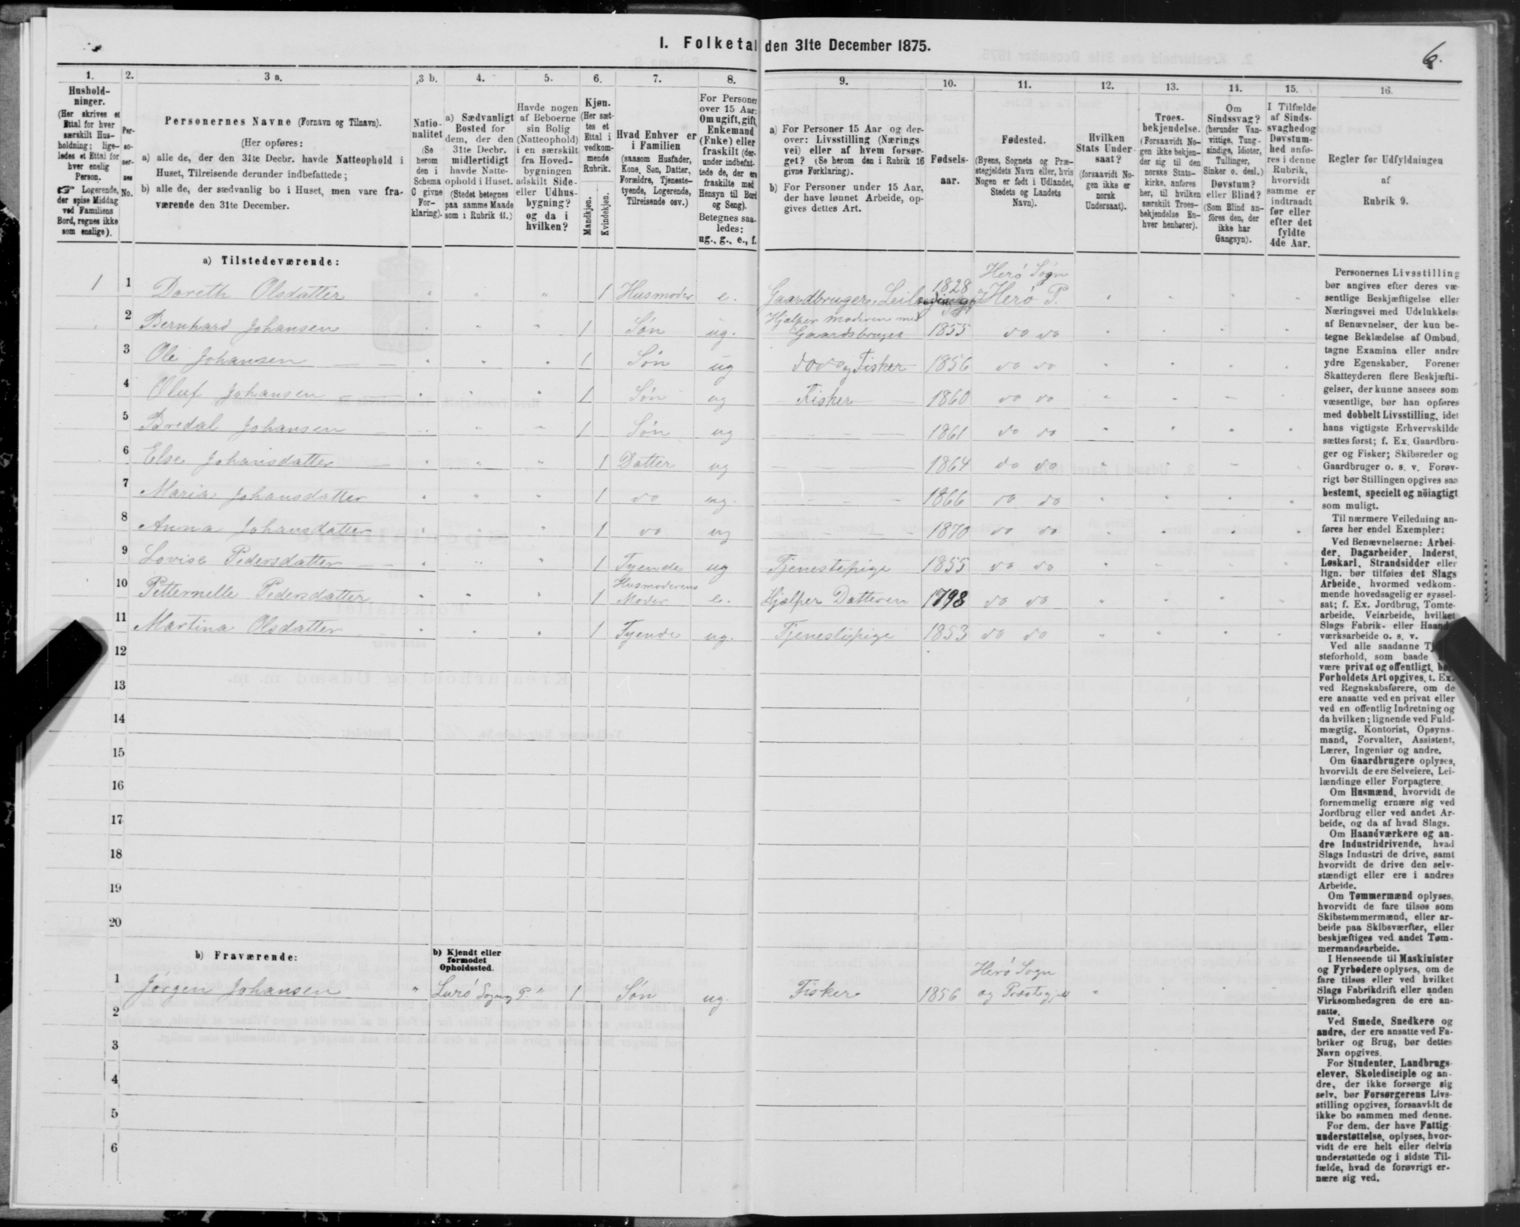 I. Folketal den 31te December 1875.
6.
1.
Husholdninger.
(Her skrives et
Ettal for hver
særskilt Husholdning; ligeledes et Ettal for
hver enslig
Person.
Logerende,
der spise Middag
ved Familiens
Bord, regnes ikke
som enslige).
2.
Personernes
No.
3 a.
Personernes Navne (Fornavn og Tilnavn).
(Her opføres:
a) alle de, der den 31te Decbr. havde Natteophold i
Huset, Tilreisende derunder indbefattede;
b) alle de, der sædvanlig bo i Huset, men vare fraværende den 31te December.
3 b.
Nationalitet
(Se
herom
den i
Schema
C givne
Forklaring).
4.
a) Sædvanligt
Bosted for
dem, der den
31te Decbr.
midlertidigt
havde Natteophold i Huset.
(Stedet betegnes
paa samme Maade
som i Rubrik 11.)
5.
Havde nogen
af Beboerne
sin Bolig
(Natteophold)
i en særskilt
fra Hovedbygningen
adskilt Side-
eller Udhusbygning?
og da i
hvilken?
6.
Kjøn.
(Her sættes et
Ettal i
vedkommende
Rubrik.
Mandkjøn.
Kvindekjøn.
7.
Hvad Enhver er
i Familien
(saasom Husfader,
Kone, Søn, Datter,
Forældre, Tjenestetyende, Logerende,
Tilreisende osv.)
8.
For Personer
over 15 Aar:
Om ugift, gift,
Enkemand
(Enke) eller
fraskilt (derunder indbefattede de, der ere
fraskilte med
Hensyn til Bord
og Seng).
Betegnes saaledes:
ug., g., e., f.
9.
a) For Personer 15 Aar og derover: Livsstilling (Næringsvei) eller af hvem forsørget? (Se herom den i Rubrik 16
givne Forklaring).
b) For Personer under 15 Aar,
der have lønnet Arbeide, opgives dettes Art.
10.
Fødselsaar.
11.
Fødested.
(Byens, Sognets og Præstegjeldets Navn eller, hvis
Nogen er født i Udlandet,
Stedets og Landets
Navn).
12.
Hvilken
Stats Undersaat?
(forsaavidt Nogen ikke er
norsk
Undersaat).
13.
Troesbekjendelse.
(Forsaavidt Nogen ikke bekjender sig til den
norske Statskirke, anføres
her, til hvilken
særskilt Troesbekjendelse Enhver henhører).
14.
Om
Sindssvag?
(herunder Vanvittige, Tungsindige, Idioter,
Tullinger,
Sinker o. desl.)
Døvstum?
eller Blind?
(Som Blind anføres den, der
ikke har
Gangsyn).
15.
I Tilfælde
af Sindssvaghed og
Døvstumhed anføres i denne
Rubrik,
hvorvidt
samme er
indtraadt
før eller
efter det
fyldte
4de Aar.
16.
Regler for Udfyldningen
af
Rubrik 9.
a) Tilstedeværende:
1 1 Doreth Olsdatter 1 Husmoder e. Gaardbruger, Leilændinge 1828 Herø Sogn Herø P.
2 Bernhard Johansen 1 Søn ug. Hjælper moderen med Gaardsbruget 1855 do do
3 Ole Johansen 1 Søn ug do do og Fisker 1856 do do
4 Oluf Johansen 1 Søn ug Fisker 1860 do do
5 Bredal Johansen 1 Søn ug 1861 do do
6 Else Johansdatter 1 Datter ug 1864 do do
7 Maria Johansdatter 1 do ug. 1866 do do
8 Anna Johansdatter 1 do ug 1870 do do
9 Lovise Pedersdatter 1 Tyende ug Tjenestepige 1855 do do
10 Petternelle Pedersdatter 1 Husmoderens Moder e. Hjælper Datteren 1798 do do
11 Martina Olsdatter 1 Tyende ug. Tjenestepige 1853 do do
12
13
14
15
16
17
18
19
20
b) Fraværende:
b) Kjendt eller
formodet
Opholdssted.
1 Jørgen Johansen Lurø Sogn og P 1 Søn ug. Fisker 1856 Herø Sogn og Præstegjeld
2
3
4
5
6
Personernes Livsstilling
bør angives efter deres væsentlige Beskjæftigelse eller
Næringsvei med Udelukkelse
af Benævnelser, der kun betegne Beklædelse af Ombud,
tagne Examina eller andre
ydre Egenskaber. Forener
Skatteyderen flere Beskjæftigelser, der kunne ansees som
væsentlige, bør han opføres
med dobbelt Livsstilling, idet
hans vigtigste Erhvervskilde
sættes først; f. Ex. Gaardbruger og Fisker; Skibsreder og
Gaardbruger o. s. v. Forøvrigt bør Stillingen opgives saa
bestemt, specielt og nøiagtigt
som muligt.
Til nærmere Veiledning anføres her endel Exempler:
Ved Benævnelserne: Arbeider, Dagarbeider, Inderst,
Løskarl, Strandsidder eller
lign. bør tilføies det Slags
Arbeide, hvormed vedkommende hovedsagelig er sysselsat; f. Ex. Jordbrug, Tomtearbeide, Veiarbeide, hvilket
Slags Fabrik- eller Haandværksarbeide o. s. v.
Ved alle saadanne Tjenesteforhold, som baade kunne
være privat og offentligt, bør
Forholdets Art opgives, t. Ex.
ved Regnskabsførere, om de
ere ansatte ved en privat eller
ved en offentlig Indretning og
da hvilken; lignende ved Fuldmægtig, Kontorist, Opsynsmand, Forvalter, Assistent,
Lærer, Ingeniør og andre.
Om Gaardbrugere oplyses,
hvorvidt de ere Selveiere, Leilændinge eller Forpagtere.
Om Husmænd, hvorvidt de
fornemmelig ernære sig ved
Jordbrug eller ved andet Arbeide, og da af hvad Slags.
Om Haandværkere og andre Industridrivende, hvad
Slags Industri de drive, samt
hvorvidt de drive den selvstændigt eller ere i andres
Arbeide.
Om Tømmermænd oplyses,
hvorvidt de fare tilsøs som
Skibstømmermænd, eller arbeide paa Skibsværfter, eller
beskjæftiges ved andet Tømmermandsarbeide.
I Henseende til Maskinister
og Fyrbødere oplyses, om de
fare tilsøs eller ved hvilket
Slags Fabrikdrift eller anden
Virksomhedsgren de ere ansatte.
Ved Smede, Snedkere og
andre, der ere ansatte ved Fabriker og Brug, bør dettes
Navn opgives.
For Studenter, Landbrugselever, Skoledisciple og andre, der ikke forsørge sig
selv, bør Forsørgerens Livsstilling opgives, forsaavidt de
ikke bo sammen med denne.
For dem, der have Fattigunderstøttelse, oplyses, hvorvidt de ere helt eller delvis
understøttede og i sidste Tilfælde, hvad de forøvrigt ernære sig ved.